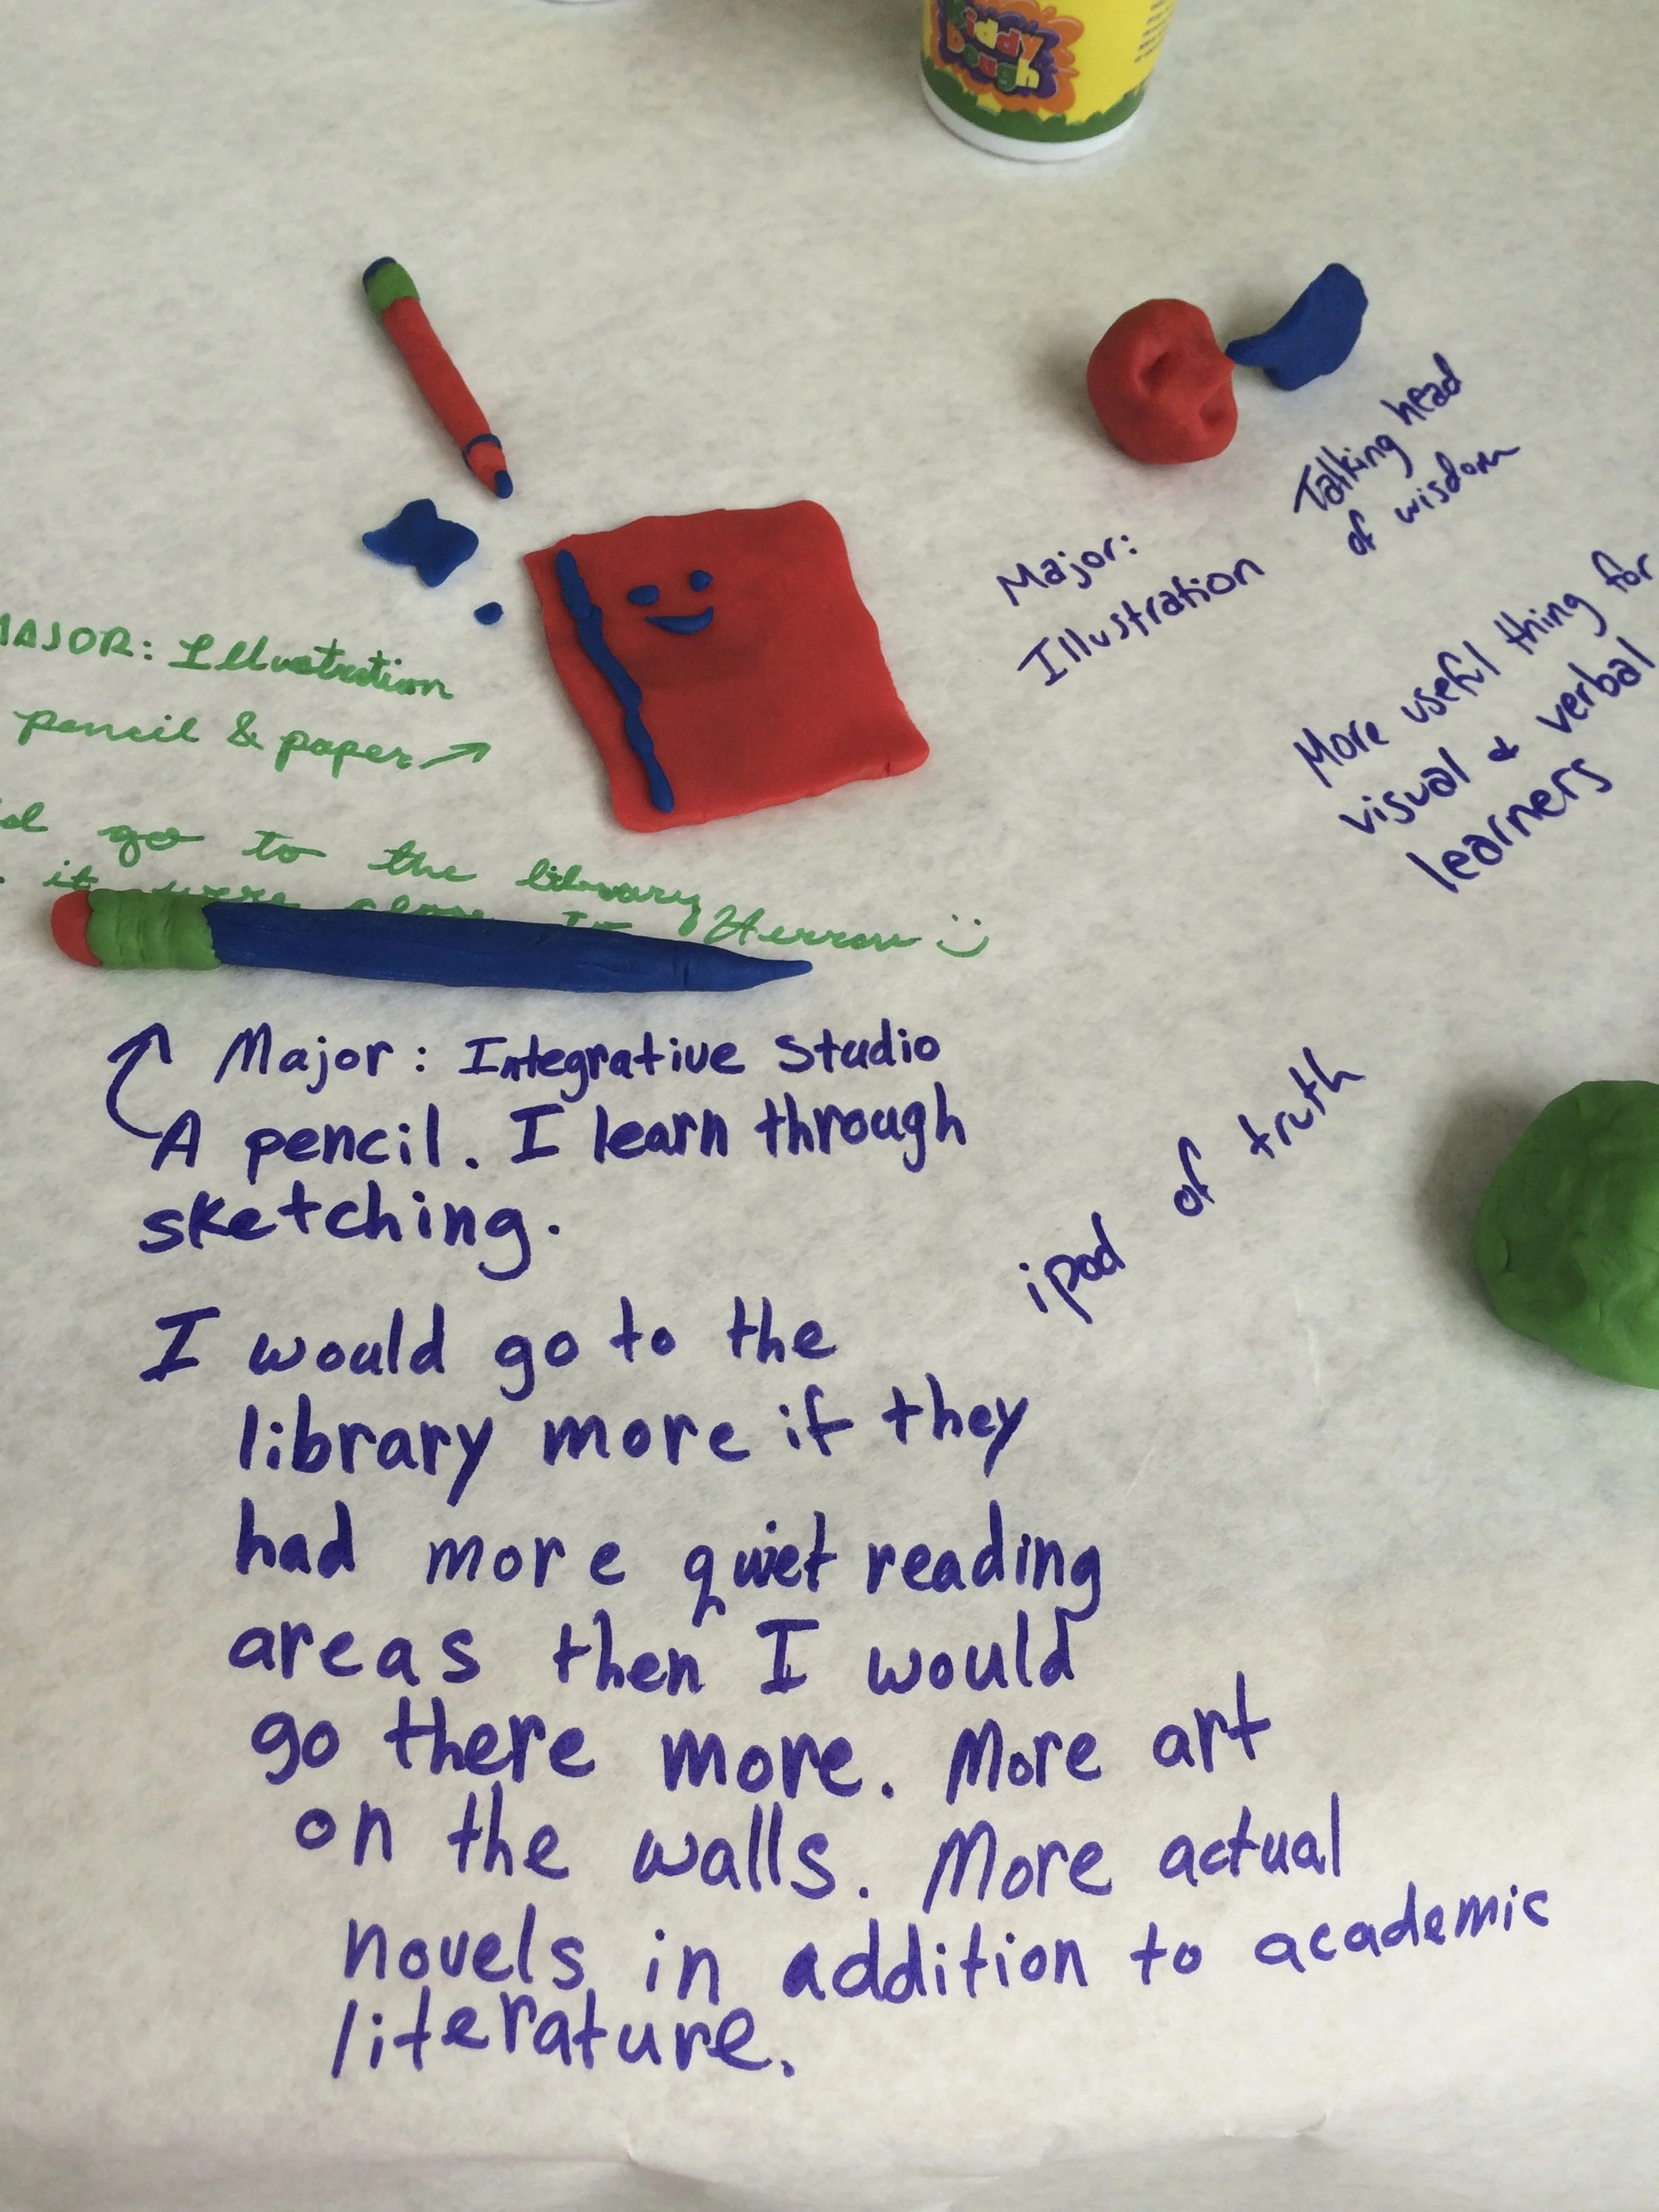 Kiddy
Dough
MAJOR: Illustration
pencil & paper
go to the library
it were close to Herron
Major:
Illustration
Talking head
of wisdom
More useful thing for
visual & verbal
learners
Major: Integrative Studio
A pencil. I learn through
sketching.
ipod of truth
I would go to the
library more if they
had more quiet reading
areas then I would
go there more. More art
on the walls. More actual
novels in addition to academic
literature.